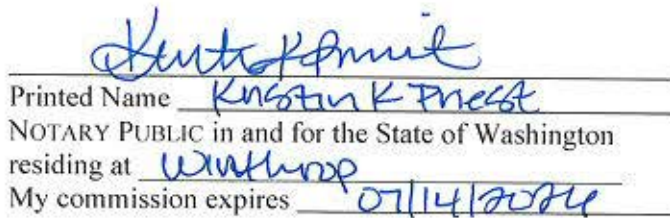 Printed Name Kristin K Priest
NOTARY PUBLIC in and for the State of Washington
residing at Winthrop
My commission expires 07/14/2026